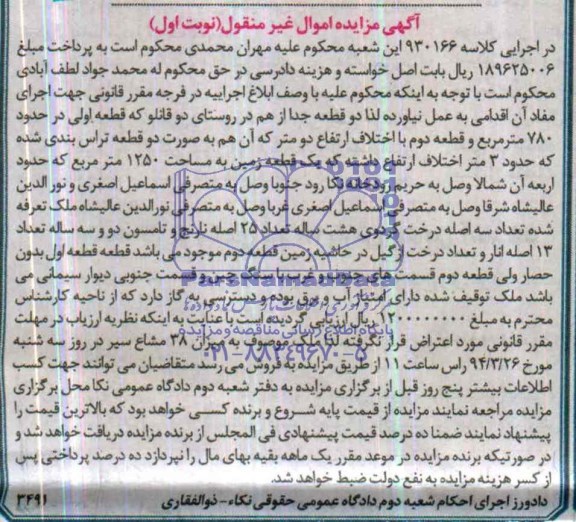 آگهی مزایده اموال غیر منقول(نوبت اول)
در اجرایی کلاسه ۹۳۰۱۶۶ این شعبه محکوم علیه مهران محمدی محکوم است به پرداخت مبلغ
۱۸۹۶۲۵۰۰۶ ریال بابت اصل خواسته و هزینه دادرسی در حق محکوم له محمد جواد لطف آبادی
محکوم است با توجه به اینکه محکوم علیه با وصف ابلاغ اجراییه در فرجه مقرر قانونی جهت اجرای
مفاد آن اقدامی به عمل نیاورده لذا دو قطعه جدا از هم در روستای دو قانلو که قطعه اولی در حدود
۷۸۰ مترمربع و قطعه دوم با اختلاف ارتفاع دو متر که آن هم به صورت دو قطعه تراس بندی شده
که حدود ۳ متر اختلاف ارتفاع داشته که یک قطعه زمین به مساحت ۱۲۵۰ متر مربع که حدود
اربعه آن شمالا وصل به حریم رودخانه نکا رود جنوبا وصل به متصرفی اسماعیل اصغری و نور الدین
عالیشاه شرقا وصل به متصرفی اسماعیل اصغری غربا وصل به متصرفی نورالدین عالیشاه ملک تعرفه
شده تعداد سه اصله درخت گردوی هشت ساله تعداد ۲۵ اصله نارنج و تامسون دو و سه ساله تعداد
۱۳ اصله انار و تعداد درخت ازگیل در حاشیه زمین قطعه دوم موجود می باشد قطعه اول بدون
حصار ولی قطعه دوم قسمت های جنوب و غرب با سنگ چین و قسمت جنوبی دیوار سیمانی می
باشد ملک توقیف شده دارای امتیاز آب و برق بوده و دسترسی به گاز دارد که از ناحیه کارشناس
محترم به مبلغ ریال ارزیابی گردیده است با عنایت به اینکه نظریه ارزیاب در مهلت
مقرر قانونی مورد اعتراض قرار نگرفته لذا ملک موصوف به میزان ۳۸ مشاع سیر در روز سه شنبه
مورخ ۹۴/۳/۲۶ راس ساعت ۱۱ از طریق مزایده به فروش می رسد متقاضیان می توانند جهت کسب
اطلاعات بیشتر پنج روز قبل از برگزاری مزایده به دفتر شعبه دوم دادگاه عمومی نکا محل برگزاری
مزایده مراجعه نمایند مزایده از قیمت پایه شروع و برنده کسی خواهد بود که بالاترین قیمت را
پیشنهاد نمایند ضمنا ده درصد قیمت پیشنهادی فی المجلس از برنده مزایده دریافت خواهد شد و
در صورتیکه برنده مزایده در موعد مقرر یک ماهه بقیه بهای مال را نپردازد ده درصد پرداختی پس
از کسر هزینه مزایده به نفع دولت ضبط خواهد شد.
دادورز اجرای احکام شعبه دوم دادگاه عمومی حقوقی نکاء- ذوالفقاری
۳۴۹۱
ParsNamadData
پایگاه اطلاع رسانی مناقصه و مزایده
۰۲۱-۸۸۳۴۹۶۷۰-۵